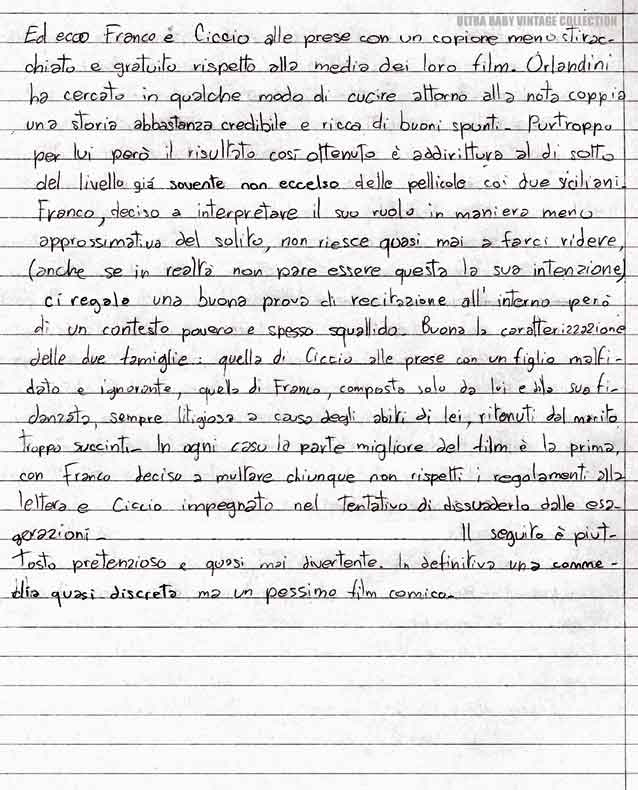 ULTRA BABY VINTAGE COLLECTION
Ed ecco Franco e Ciccio alle prese con un copione meno stirac-
chiato e gratuito rispetto alla media dei loro film. Orlandini
ha cercato in qualche modo di cucire attorno alla nota coppia
una storia abbastanza credibile e ricca di buoni spunti. Purtroppo
per lui però il risultato così ottenuto è addirittura al di sotto
del livello già sovente non eccelso delle pellicole coi due siciliani.
Franco, deciso a interpretare il suo ruolo in maniera meno
approssimativa del solito, non riesce quasi mai a farci ridere,
(anche se in realtà non pare essere questa la sua intenzione)
ci regala una buona prova di recitazione all'interno però
di un contesto povero e spesso squallido. Buona la caratterizzazione
delle due famiglie: quella di Ciccio alle prese con un figlio malfi-
dato e ignorante, quella di Franco, composta solo da lui e dalla sua fi-
danzata, sempre litigiosa a causa degli abiti di lei, ritenuti dal marito
troppo succinti. In ogni caso la parte migliore del film è la prima,
con Franco deciso a multare chiunque non rispetti i regolamenti alla
lettera e Ciccio impegnato nel tentativo di dissuaderlo dalle esa-
gerazioni. Il seguito è piut-
tosto pretenzioso e quasi mai divertente. In definitiva una comme-
dia quasi discreta ma un pessimo film comico.